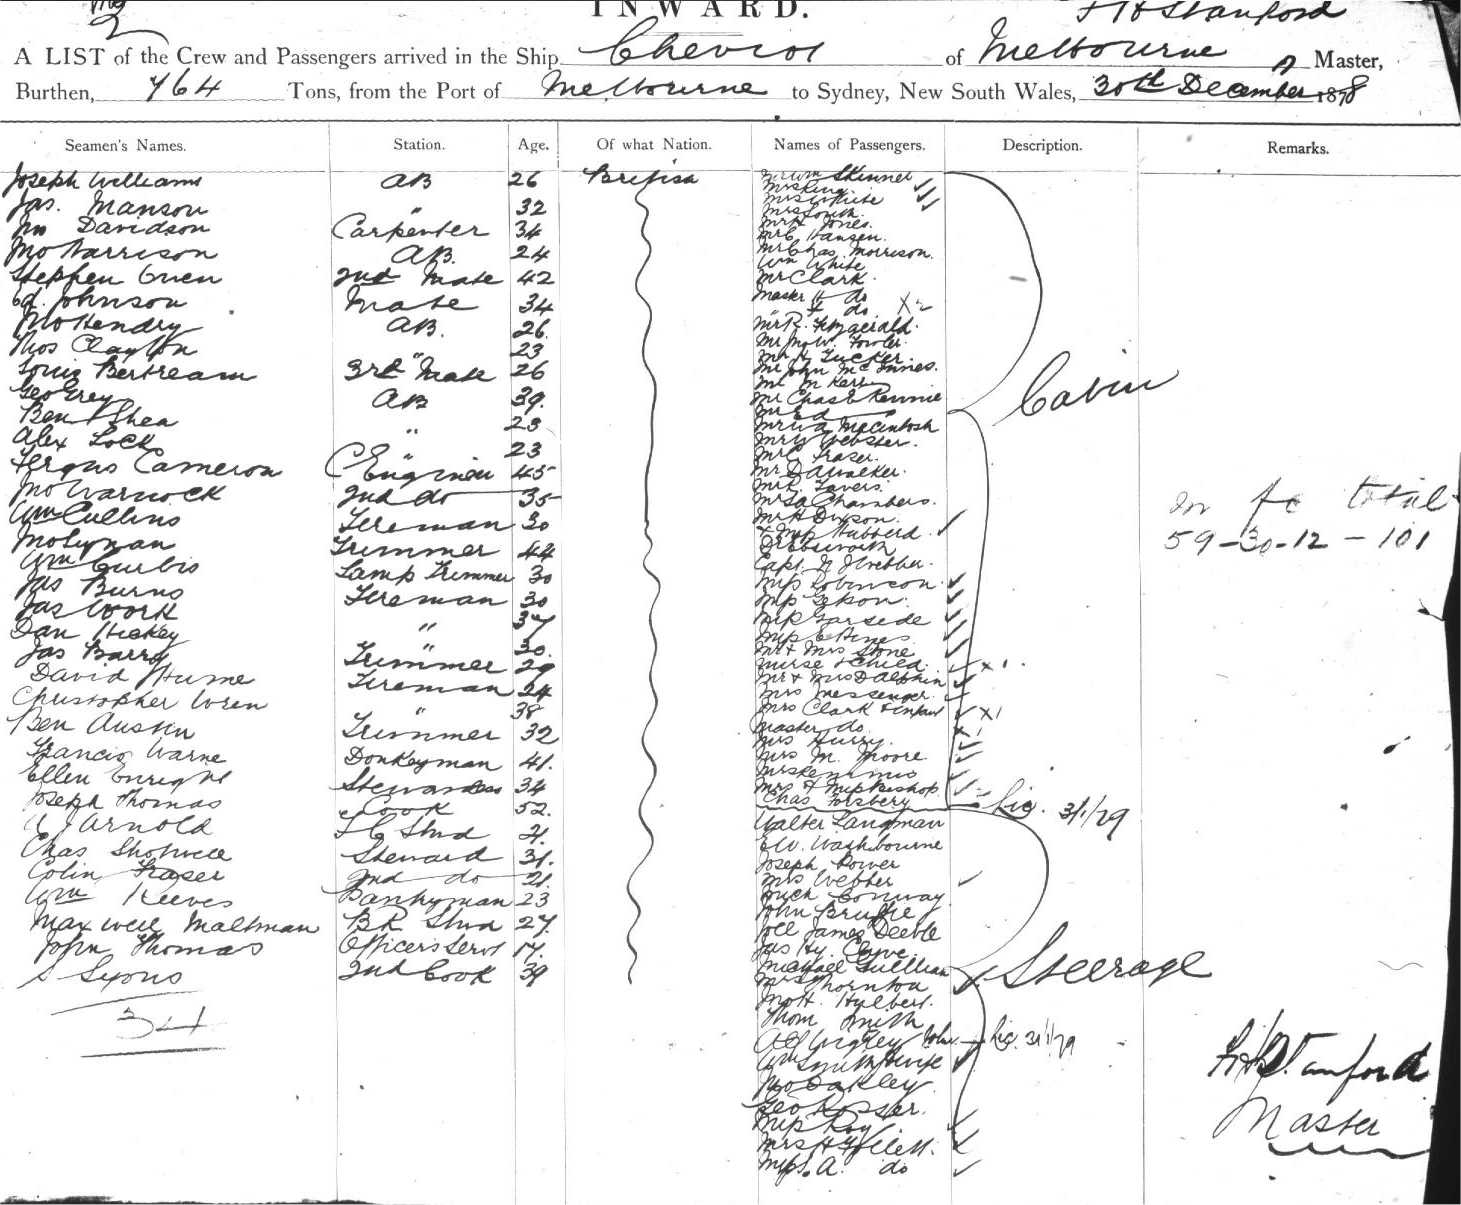 INWARD.
F H Stanford
A LIST of the Crew and Passengers arrived in the Ship Cheviot of Melbourne Master,
Burthen, 764 Tons, from the Port of Melbourne to Sydney, New South Wales, 30th December 1878
Seamen's Names. Station. Age. Of what Nation. Names of Passengers. Description. Remarks.
Joseph Williams AB 26 British
Jas. Manson " 32
Jno Davidson Carpenter 34
Jno Harrison AB. 24
Stephen Owen 2nd Mate 42
Ed. Johnson Mate 34
Jno Hendry AB. 26
Thos Clayton " 23
Louis Bertream 3rd Mate 26
Geo Grey AB 39.
Ben Shea " 23
Alex Lock " 23
Fergus Cameron C Engineer 45
Jno Warnock 2nd do 35
Wm Cullins Fireman 30
Jno Lynan Trimmer 44
Wm Curbis Lamp Trimmer 30
Jas Burns Fireman 30
Jas Work " 37
Dan Hickey " 30.
Jas Barry Trimmer 29
David Hume Fireman 24
Christopher Wren " 38
Ben Austin Trimmer 32
Francis Warne Donkeyman 41.
Ellen Enright Stewardess 34
Joseph Thomas Cook 52.
Arnold Stwd 21.
Chas Shotwell Steward 31.
Colin Fraser 2nd do 21.
Wm Reeves Pantryman 23
Maxwell Maltman BR Stwd 27.
John Thomas Officers Servt 17.
S Lyons 2nd Cook 39
34
Mr Wm Skinner
Mrs King
Mrs White
Mrs South
Mr H Jones.
Mr C Hansen.
Mr Chas. Morrison.
Wm White
Mr Clark
Master H do
" F do. X2
Mr R. Fitzgerald.
Mr Jno W. Fowler
Mr H Tucker.
Mr John McInnes.
Mr M Kerr
Mr Chas E Rennie
Mr Ed
Mr Wa Macintosh
Mr W Webster.
Mr C Fraser.
Mr D A Walker.
Mr R. Tavers.
Mr Sa Chambers.
Mr H Dixson.
Miss Hubberd
Dr Ebsworth
Capt. G J Webber.
Miss Robinson
Miss Gibson.
Miss Garside
Miss C Hines
Mr & Mrs Stone
nurse & Child. X1.
Mr & Mrs Dalphin
Mrs Messenger
Mrs Clark & Infant X1
Master do. X1
Mrs Hurry.
Mrs M. Moore
Mrs Kemmis
Mrs & Miss Bishop
Chas Forsbery
Cabin
Lig. 31/1/79
Walter Langman
E W. Washbourne
Joseph Power
Mrs Webber
Hugh Conway
John
Joel James Deeble
Jas Hy.
Michael Gillllian
Mrs Thornton
Jno H. Hulbert.
Thom Smith
A J Wigley Lig. 31/1/79
Wm Smith & wife
Jno Oakley
Geo Rosser.
Miss Roy
Mrs H
Miss. A. do
Steerage
m fc total
59-30-12 - 101
F H Stanford
Master